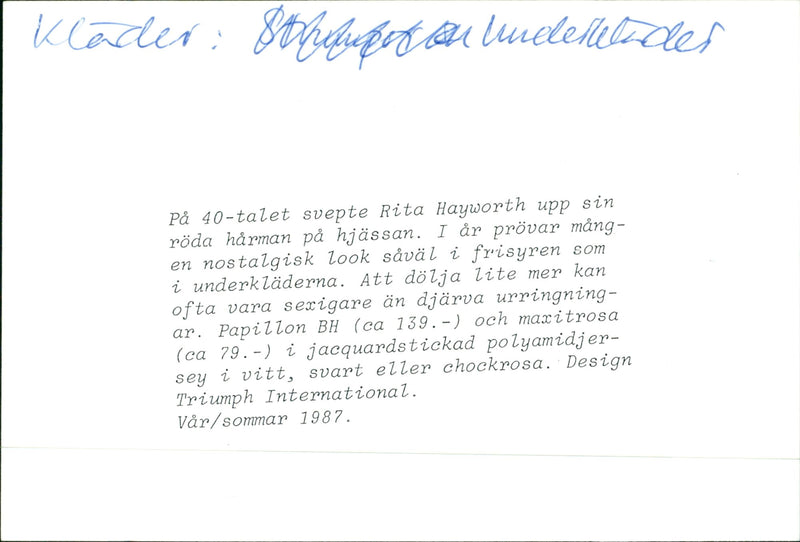 Kläder: Underkläder
På 40-talet svepte Rita Hayworth upp sin
röda hårman på hjässan. I år prövar mång-
en nostalgisk look såväl i frisyren som
i underkläderna. Att dölja lite mer kan
ofta vara sexigare än djärva urringning-
ar. Papillon BH (ca 139.-) och maxitrosa
(ca 79.-) i jacquardstickad polyamidjer-
sey i vitt, svart eller chockrosa. Design
Triumph International.
Vår/sommar 1987.